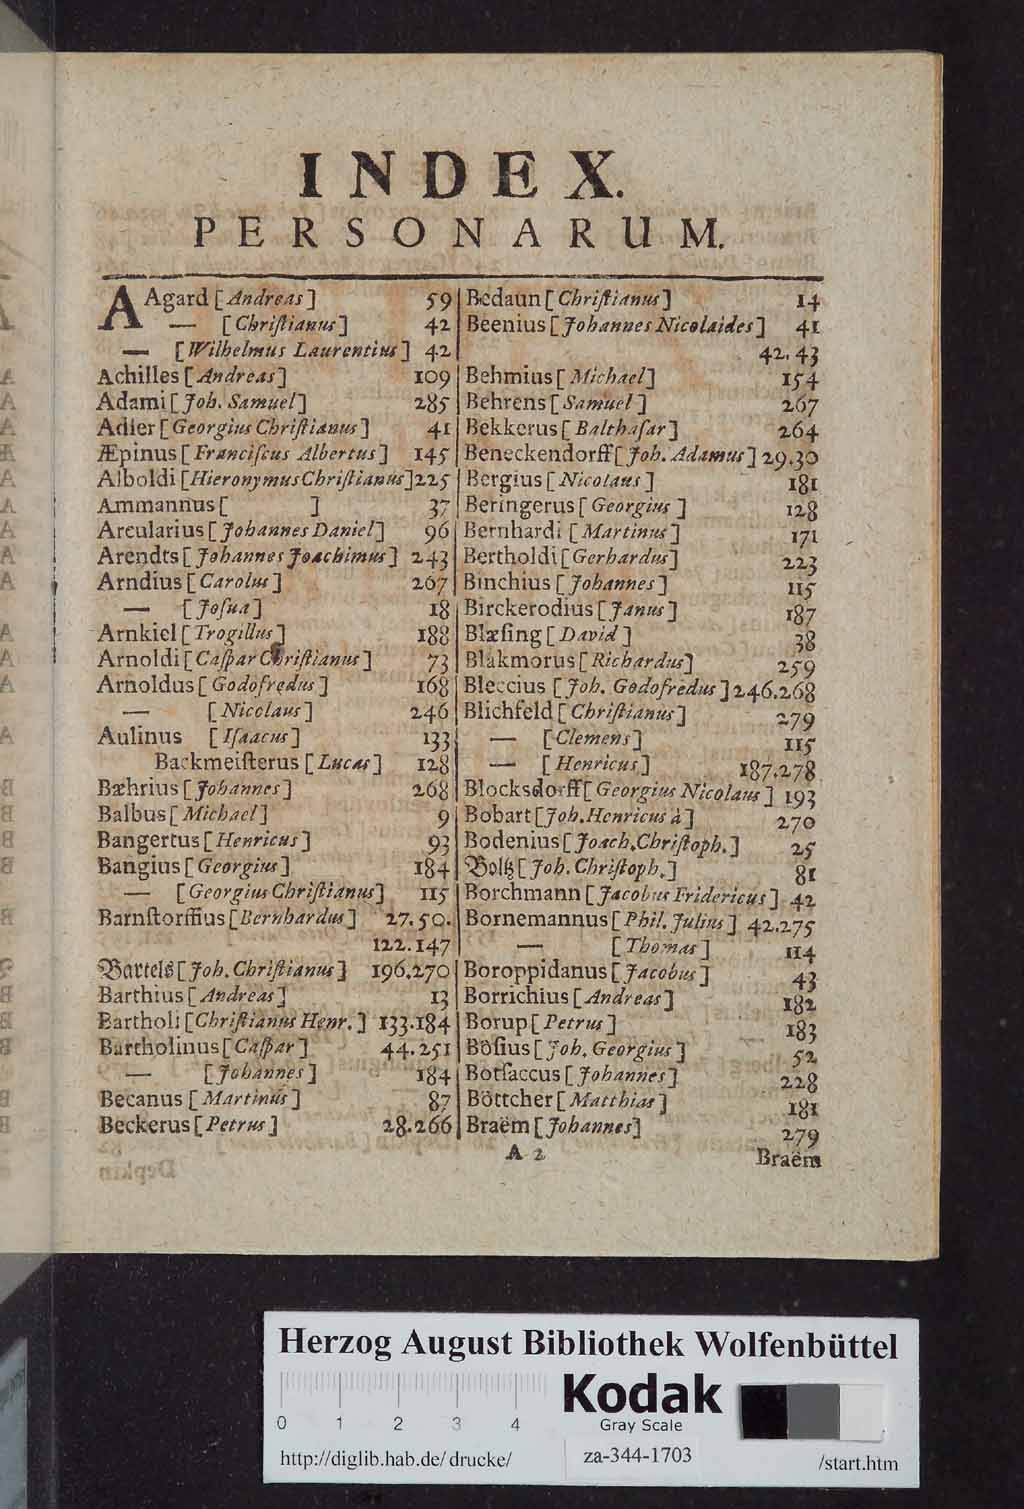 INDEX.
PERSONARUM.
AAgard [Andreas] 59
— [Chriſtianus] 42
— [Wilhelmus Laurentius] 42
Achilles [Andreas] 109
Adami [Joh. Samuel] 285
Adler [Georgius Chriſtianus] 41
Æpinus [Franciſcus Albertus] 145
Alboldi [Hieronymus Chriſtianus] 225
Ammannus [ ] 37
Arcularius [Johannes Daniel] 96
Arendts [Johannes Joachimus] 243
Arndius [Carolus] 267
— [Joſua] 18
Arnkiel [Trogillus] 188
Arnoldi [Caſpar Chriſtianus] 73
Arnoldus [Godofredus] 168
— [Nicolaus] 246
Aulinus [Iſaacus] 133
Backmeiſterus [Lucas] 128
Bæhrius [Johannes] 268
Balbus [Michael] 9
Bangertus [Henricus] 93
Bangius [Georgius] 184
— [Georgius Chriſtianus] 115
Barnſtorffius [Bernhardus] 27.50.
122.147
Bartels [Joh. Chriſtianus] 196.270
Barthius [Andreas] 13
Bartholi [Chriſtianus Henr.] 133.184
Bartholinus [Caſpar] 44.251
— [Johannes] 184
Becanus [Martinus] 87
Beckerus [Petrus] 28.266
Bedaun [Chriſtianus] 14
Beenius [Johannes Nicolaides] 41
42.43
Behmius [Michael] 154
Behrens [Samuel] 267
Bekkerus [Balthaſar] 264
Beneckendorff [Joh. Adamus] 29.30
Bergius [Nicolaus] 181
Beringerus [Georgius] 128
Bernhardi [Martinus] 171
Bertholdi [Gerhardus] 223
Binchius [Johannes] 115
Birckerodius [Janus] 187
Blæſing [David] 38
Blakmorus [Richardus] 259
Bleccius [Joh. Godofredus] 246.268
Blichfeld [Chriſtianus] 279
— [Clemens] 115
— [Henricus] 187.278
Blocksdorff [Georgius Nicolaus] 193
Bobart [Joh. Henricus à] 270
Bodenius [Joach. Chriſtoph.] 25
Boltz [Joh. Chriſtoph.] 81
Borchmann [Jacobus Fridericus] 42
Bornemannus [Phil. Julius] 42.275
— [Thomas] 114
Boroppidanus [Jacobus] 43
Borrichius [Andreas] 182
Borup [Petrus] 183
Böſius [Joh. Georgius] 52
Botſaccus [Johannes] 228
Böttcher [Matthias] 181
Braëm [Johannes] 279
A 2
Braëm
Herzog August Bibliothek Wolfenbüttel
Kodak
Gray Scale
0 1 2 3 4
http://diglib.hab.de/drucke/ za-344-1703 /start.htm